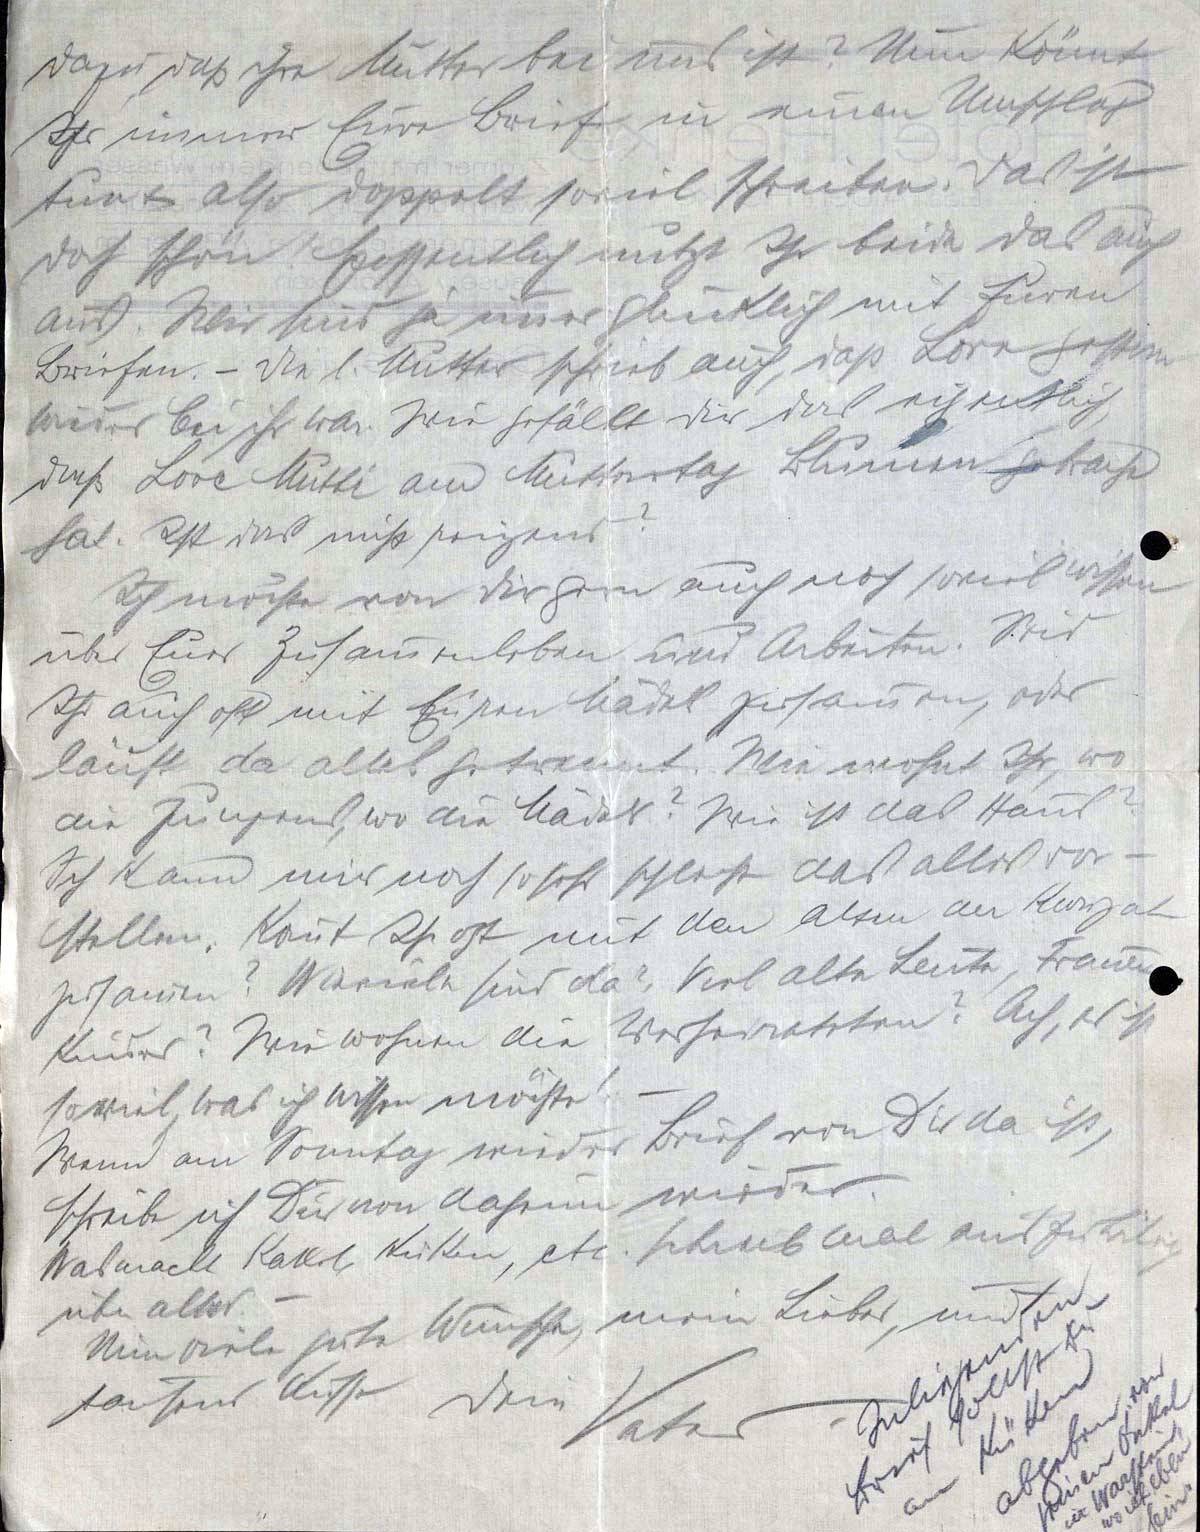 dazu, daß ihre Mutter bei uns ist? Nun könnt
Ihr immer Eure Briefe in einen Umschlag
tun & also doppelt soviel schreiben. Das ist
doch schön! Hoffentlich nützt Ihr beide das auch
aus. Wir sind ja immer glücklich mit Euren
Briefen. – Die l. Mutter schrieb auch, daß Lore gestern
wieder bei ihr war. Wie gefällt dir das eigentlich,
daß Lore Mutti am Muttertag Blumen gebracht
hat. Ist das nicht reizend?
Ich möchte von Dir gern auch noch soviel wissen
über Euer Zusammenleben und Arbeiten. Seid
Ihr auch oft mit Euren Mädels zusammen, oder
läuft da alles getrennt. Wie wohnt Ihr, wo
die Jungens, wo die Mädels? Wie ist das Haus?
Ich kann mir noch so sehr schlecht das alles vor-
stellen. Kommt Ihr oft mit den alten der
zusammen? Wieviele sind da? Viel alte Leute, Frauen
Kinder? Wie wohnen die Verheirateten? Ach, es ist
soviel, was ich wissen möchte! –
Wenn am Sonntag wieder Brief von Dir da ist,
schreibe ich Dir von daheim wieder.
Was macht Küken, etc. schreib mal
über alles. –
Nun viele gute Wünsche, mein Lieber, und
tausend Küsse Dein Vater
Inliegenden
Brief sollst Du
an Küken
abgeben, von
seinem Onkel
in
wo ich eben
bin.